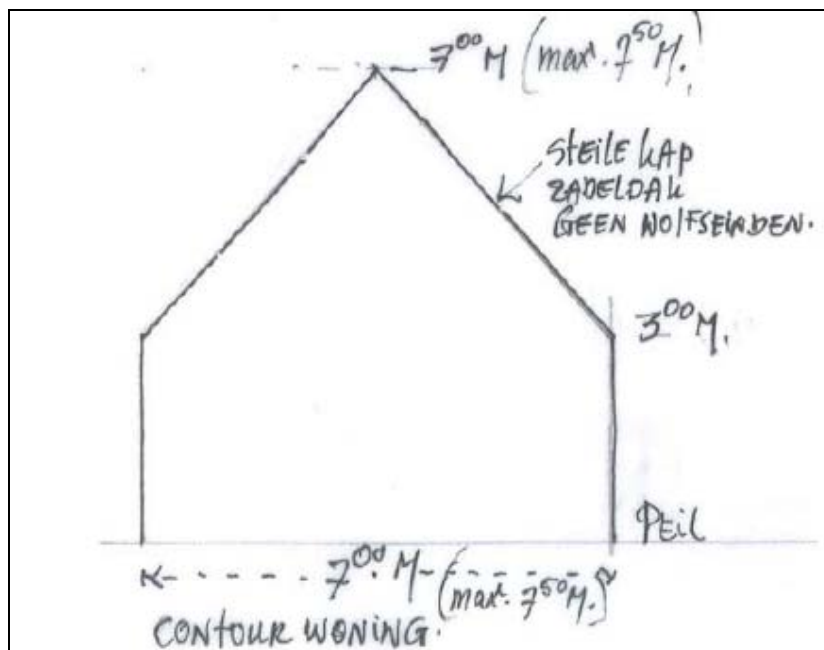 7⁰⁰ M (max. 7⁵⁰ M.)
STEILE KAP
ZADELDAK
GEEN WOLFSEINDEN.
3⁰⁰ M.
PEIL
7⁰⁰ M (max. 7⁵⁰ M.)
CONTOUR WONING.